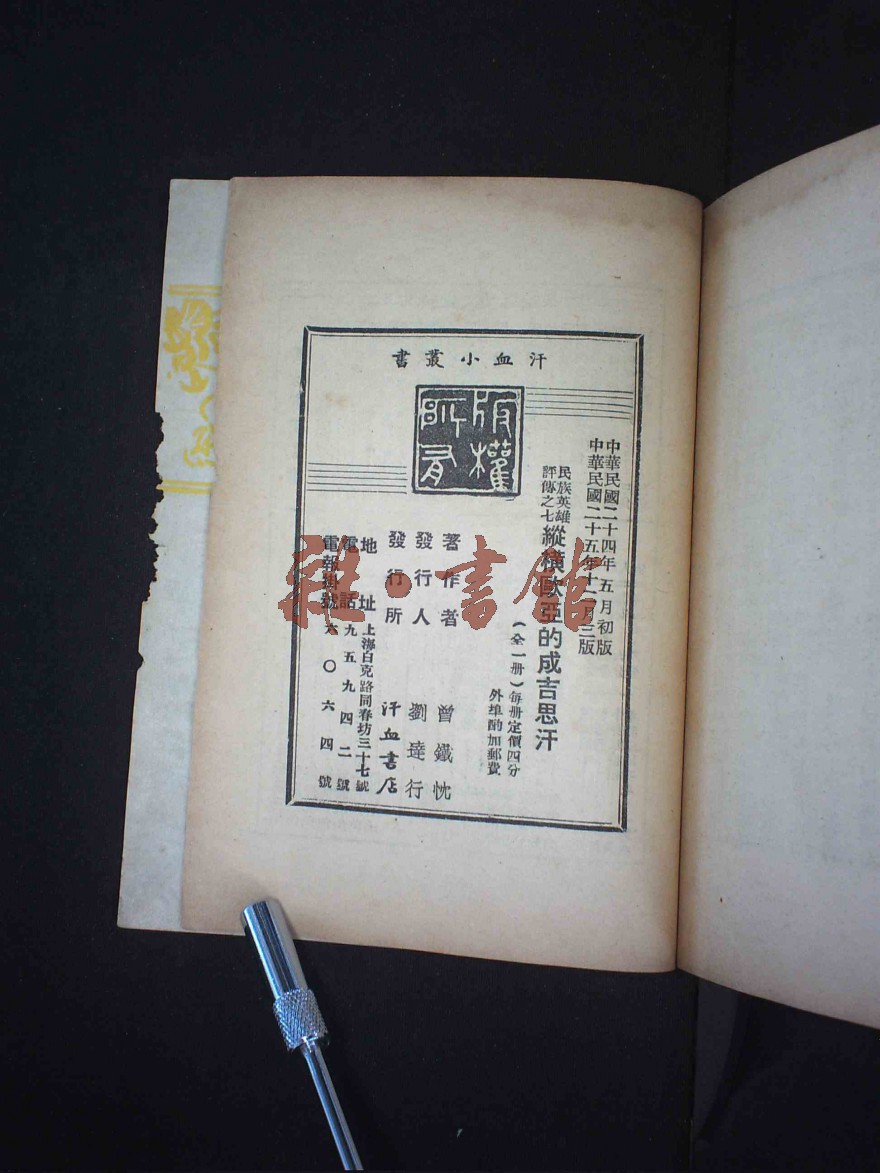 汗血小叢書
版權所有
中華民國二十四年五月初版
中華民國二十五年十二月三版
民族英雄評傳之七
縱橫歐亞的成吉思汗
(全一册)每册定價四分
外埠酌加郵費
著作者 曾鐵忱
發行人 劉達行
發行所 汗血書店
地址 上海白克路同春坊三十七號
電話 九五九四二號
電報掛號 六〇六四號
雜·書館